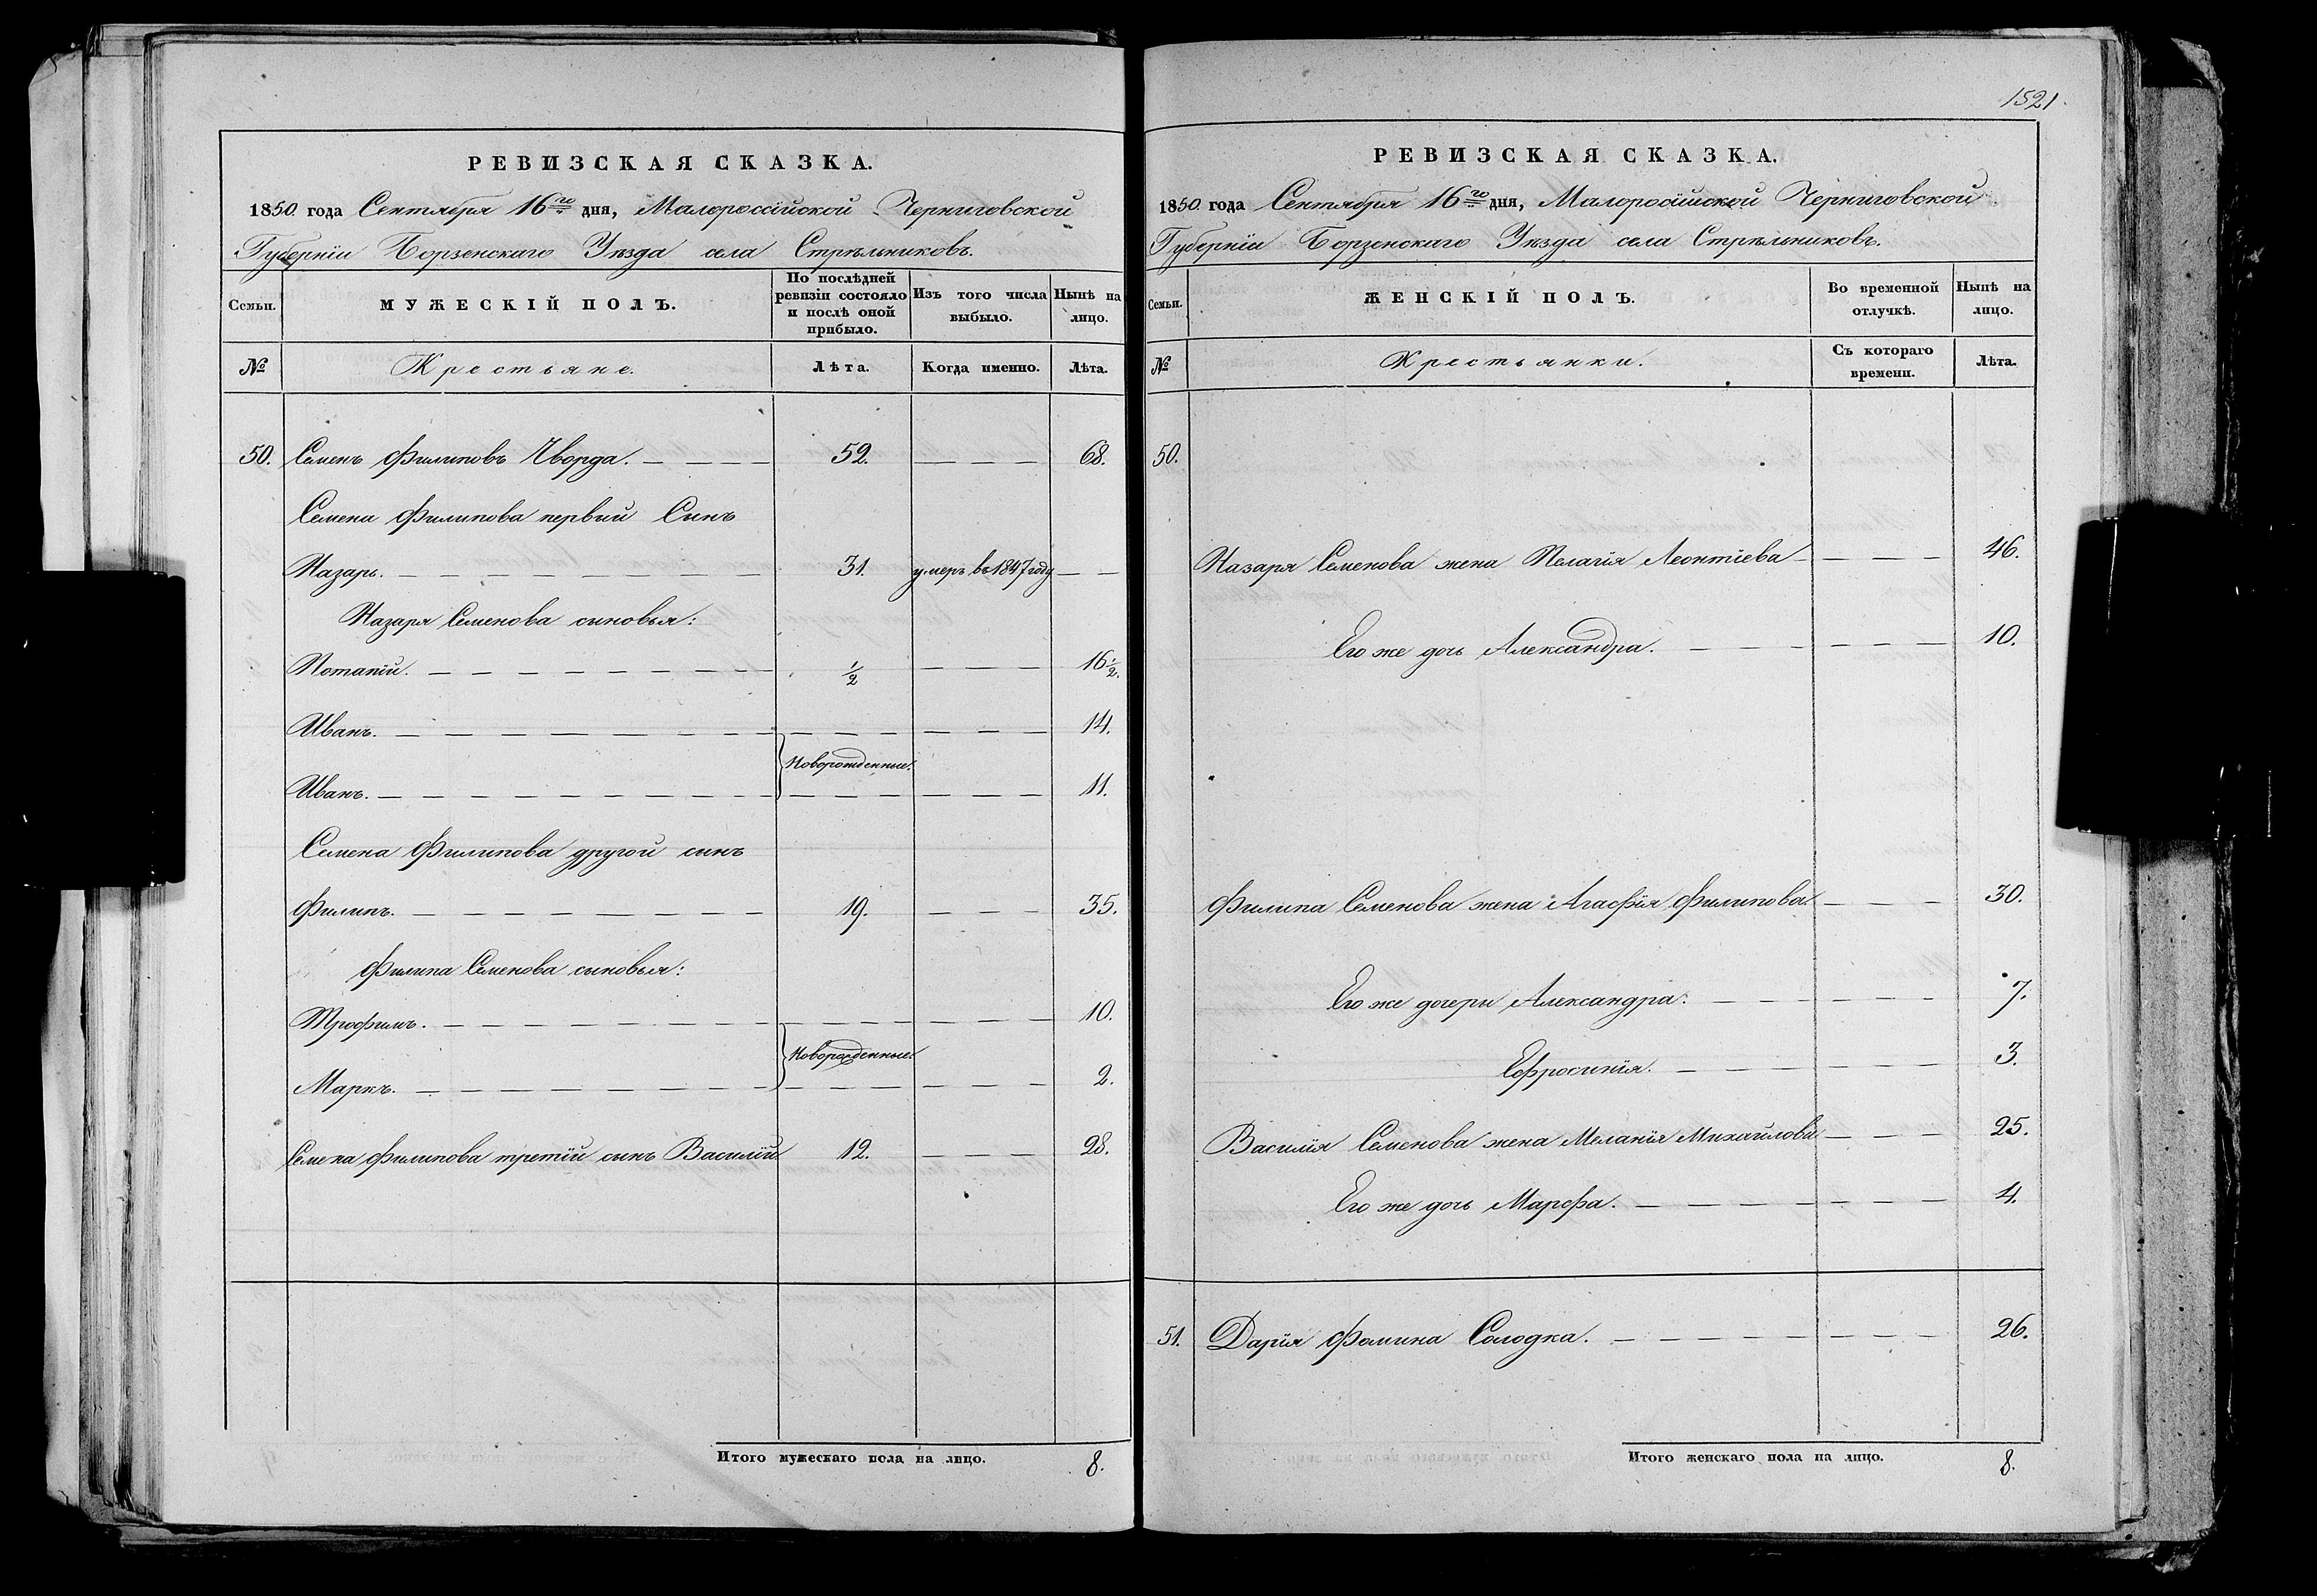 РЕВИЗСКАЯ СКАЗКА.
1850. года Сентября 16го дня, Малороссійской Черниговской
Губерніи Борзенскаго Уѣзда села Стрѣльниковъ.
Семьи. МУЖЕСКІЙ ПОЛЪ. По послѣдней ревизіи состояло и послѣ оной прибыло. Изъ того числа выбыло. Нынѣ на лицо.
№ Крестьяне. Лѣта. Когда именно. Лѣта.
50. Семенъ Филиповъ Чворда. 52. 68.
Семена Филипова первий Сынъ
Назарь. 31. умеръ въ 1847 году
Назаря Семенова сыновья:
Потапій. 1/2 16 1/2.
Иванъ. 14.
Новорожденные.
Иванъ. 11.
Семена Филипова другой сынъ
Филипъ. 19. 35.
Филипа Семенова сыновья:
Трофимъ. 10.
Новорожденные.
Маркъ. 2.
Семена Филипова третій сынъ Василій 12. 28.
Итого мужескаго пола на лицо. 8.
1521.
РЕВИЗСКАЯ СКАЗКА.
1850. года Сентября 16го дня, Малоросійской Черниговской
Губерніи Борзенскаго Уѣзда села Стрѣльниковъ.
Семьи. ЖЕНСКІЙ ПОЛЪ. Во временной отлучкѣ. Нынѣ на лицо.
№ Крестьянки. Съ котораго времени. Лѣта.
50.
Назаря Семенова жена Пелагія Леонтіева 46.
Его же дочь Александра. 10.
Филипа Семенова жена Агафія Филипова 30.
Его же дочери Александра. 7.
Ефросинія. 3.
Василія Семенова жена Меланія Михайлова 25.
Его же дочь Марфа. 4.
51. Дарія Фомина Солодка. 26.
Итого женскаго пола на лицо. 8.